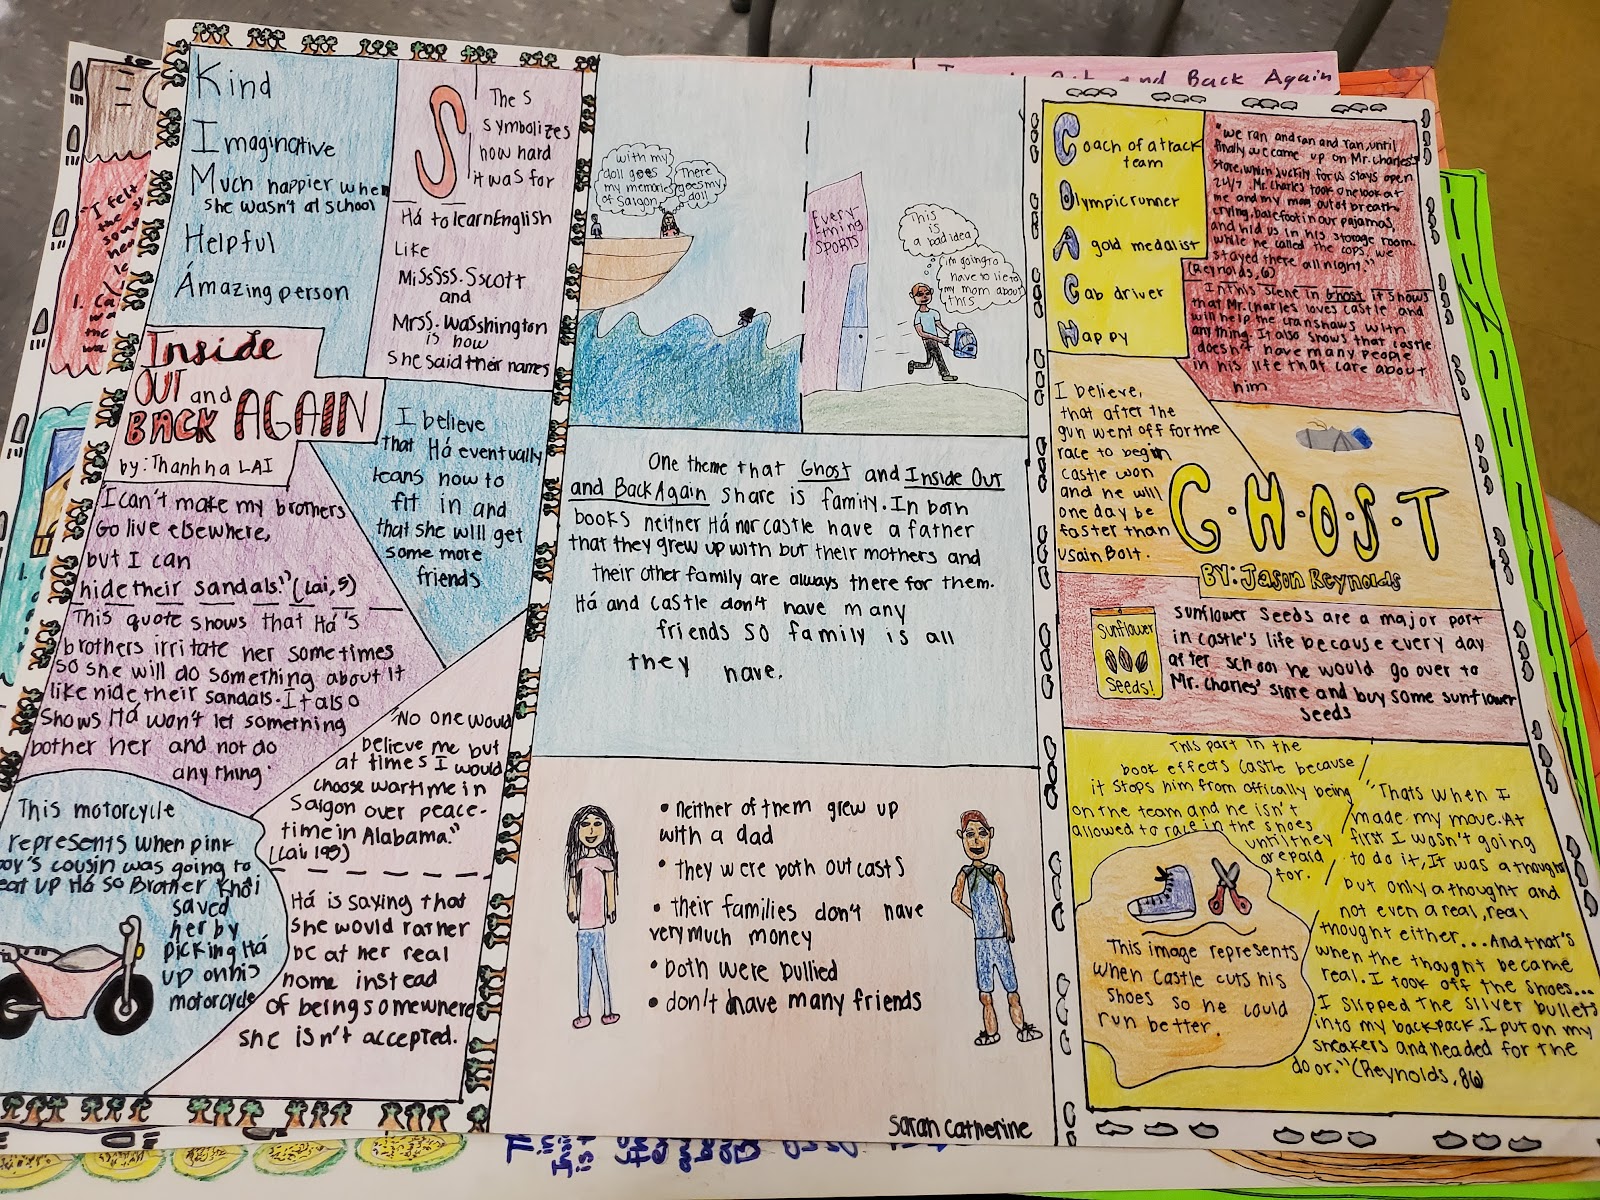 Kind
Imaginative
Much happier when
she wasn't at school
Helpful
Ámazing person
S
The S
symbolizes
how hard
it was for
Há to learn English
Like
MiSsSSS. SScott
and
MrsS. WaSshington
is how
She said their names
Inside
OUT and
BACK AGAIN
by: Thanhha LAI
I believe
that Há eventually
leans how to
fit in and
that she will get
some more
friends
I can't make my brothers
Go live elsewhere,
but I can
hide their sandals." (Lai, 5)
This quote shows that Há's
brothers irritate her sometimes
so she will do something about it
like hide their sandals. It also
shows Há won't let something
bother her and not do
anything.
"No one would
believe me but
at times I would
choose wartime in
Saigon over peace-
time in Alabama."
(Lai, 195)
Há is saying that
she would rather
be at her real
home instead
of being somewhere
she isn't accepted.
This motorcycle
represents when pink
boy's cousin was going to
eat up Há so Brother Khôi
saved
her by
picking Há
up on his
motorcycle
with my
doll goes
my memories
of Saigon
There
goes my
doll
Every-
thing
SPORTS
This
is
a bad idea
i'm going to
have to lie to
my mom about
this
One theme that Ghost and Inside Out
and Back Again share is family. In both
books neither Há nor Castle have a father
that they grew up with but their mothers and
their other family are always there for them.
Há and Castle don't have many
friends so family is all
they have.
• neither of them grew up
with a dad
• they were both outcasts
• their families don't have
very much money
• both were bullied
• don't have many friends
Sarah Catherine
Coach of a track
team
Olympic runner
A gold medalist
Cab driver
Happy
"We ran and ran and ran, until
finally we came up on Mr. Charles's
store, which luckily for us stays open
24/7. Mr. Charles took one look at
me and my mom out of breath,
crying, barefoot in our pajamas,
and hid us in his storage room
while he called the cops. We
stayed there all night."
(Reynolds, 6)
In this scene in Ghost it shows
that Mr. Charles loves Castle and
will help the Cranshaws with
anything. It also shows that Castle
doesn't have many people
in his life that care about
him
I believe,
that after the
gun went off for the
race to begin
Castle won
and he will
one day be
faster than
Usain Bolt.
G·H·O·S·T
BY: Jason Reynolds
Sunflower
Seeds!
Sunflower seeds are a major part
in castle's life because every day
after school he would go over to
Mr. Charles' store and buy some sunflower
seeds
This part in the
book effects Castle because
it stops him from offically being
on the team and he isn't
allowed to race in the shoes
until they
are paid
for.
This image represents
when Castle cuts his
shoes so he could
run better.
"Thats when I
made my move. At
first I wasn't going
to do it, It was a thought
but only a thought and
not even a real, real
thought either...And that's
when the thought became
real. I took off the shoes...
I slipped the silver bullets
into my backpack. I put on my
sneakers and headed for the
door." (Reynolds, 86)
and Back Again
"I felt
1.